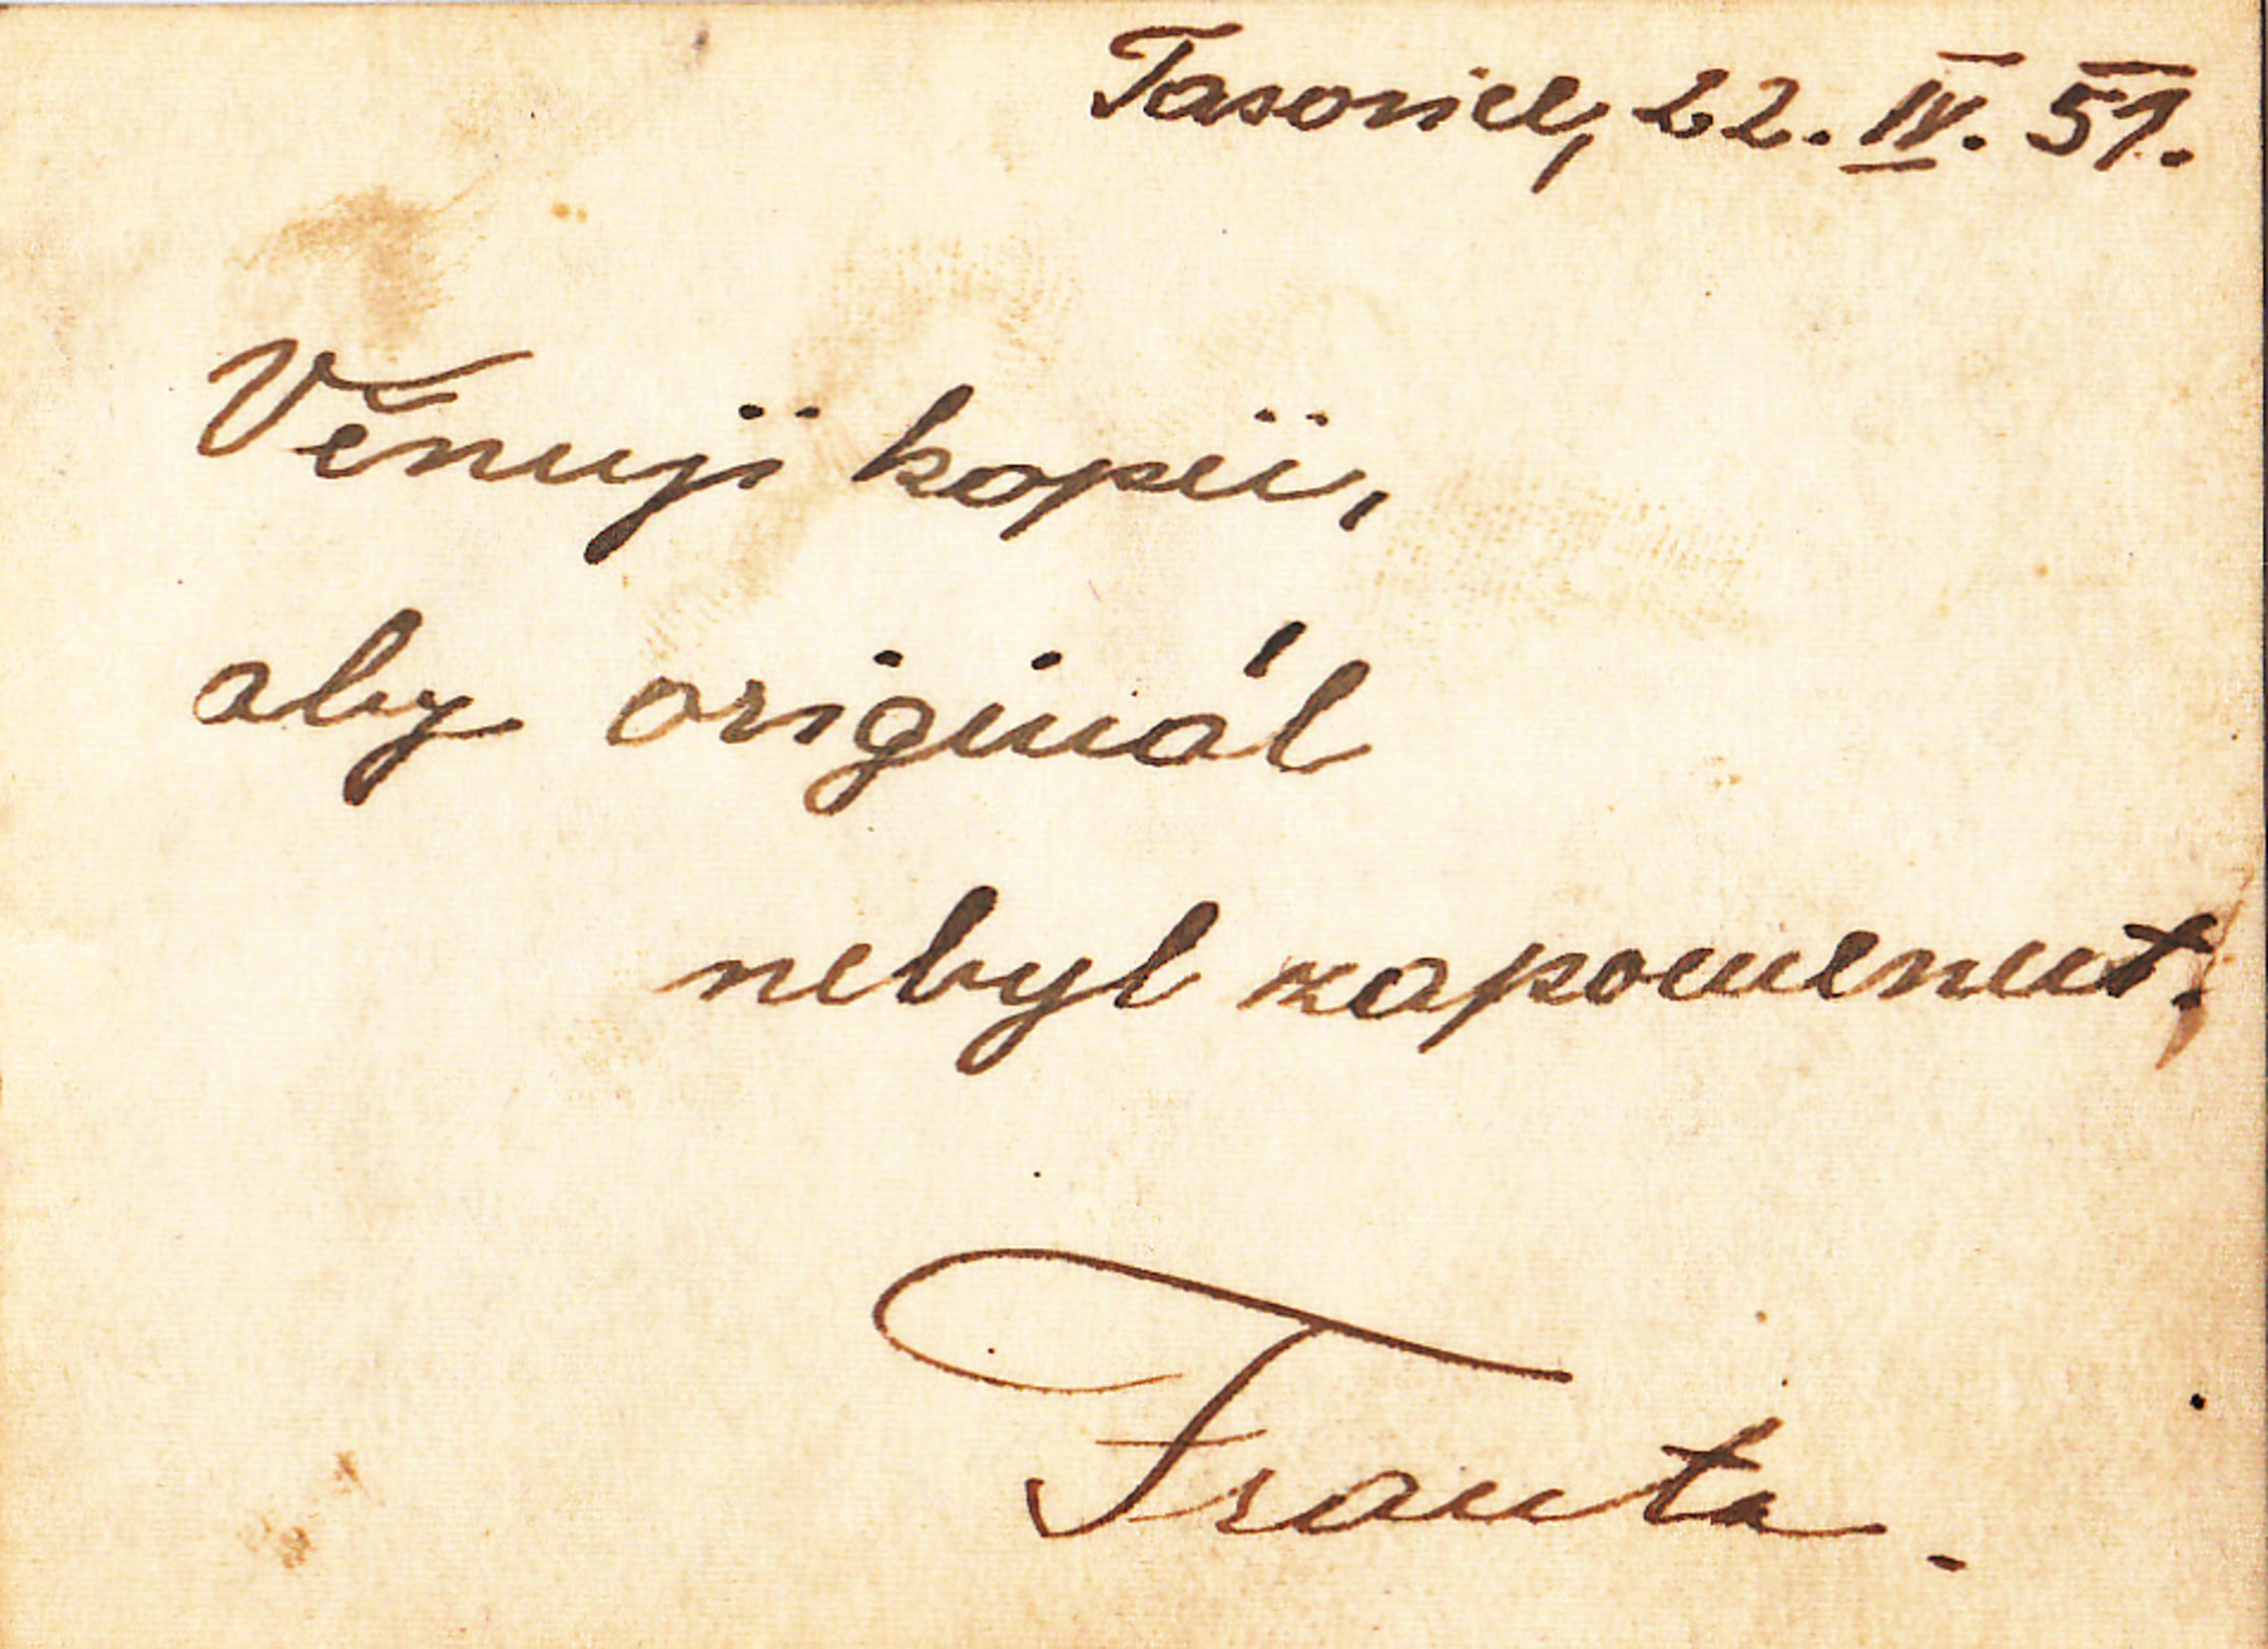 Tasovice, 22. IV. 51.
Věnuji kopii,
aby originál
nebyl zapomenut.
Franta.